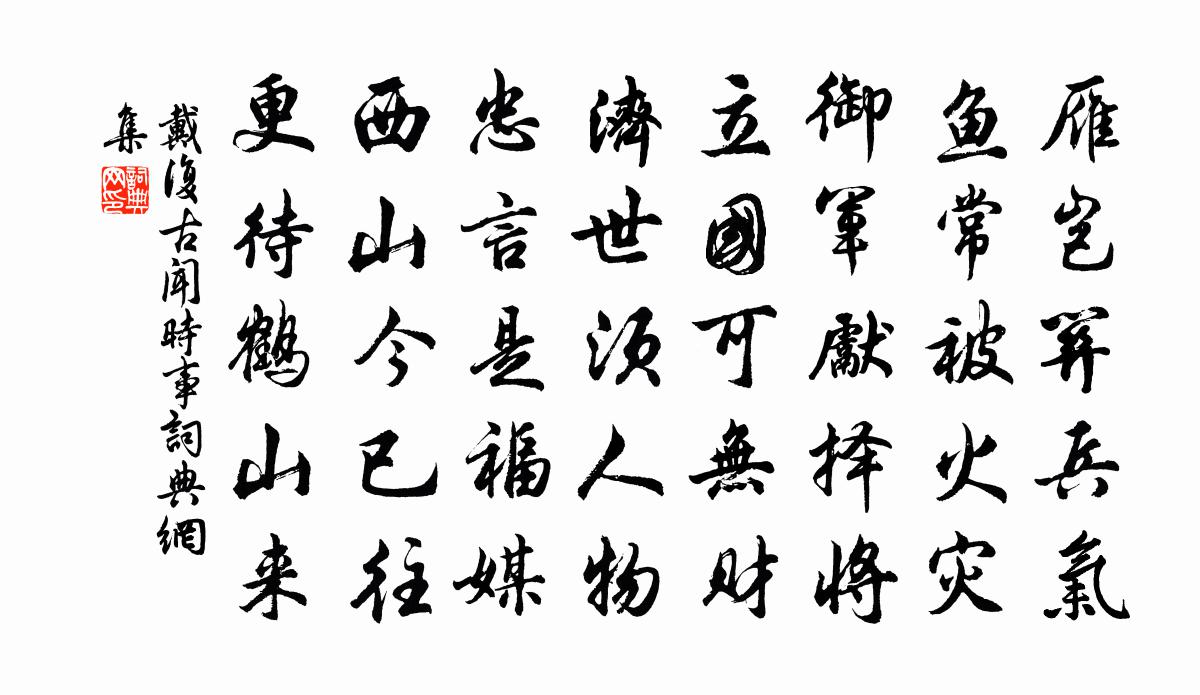 雁岂关兵氣
鱼常被火灾
御軍獻择将
立國可無财
濟世须人物
忠言是福媒
西山今已往
更待鹤山来
戴復古聞時事詞典網
集
詞典
网印